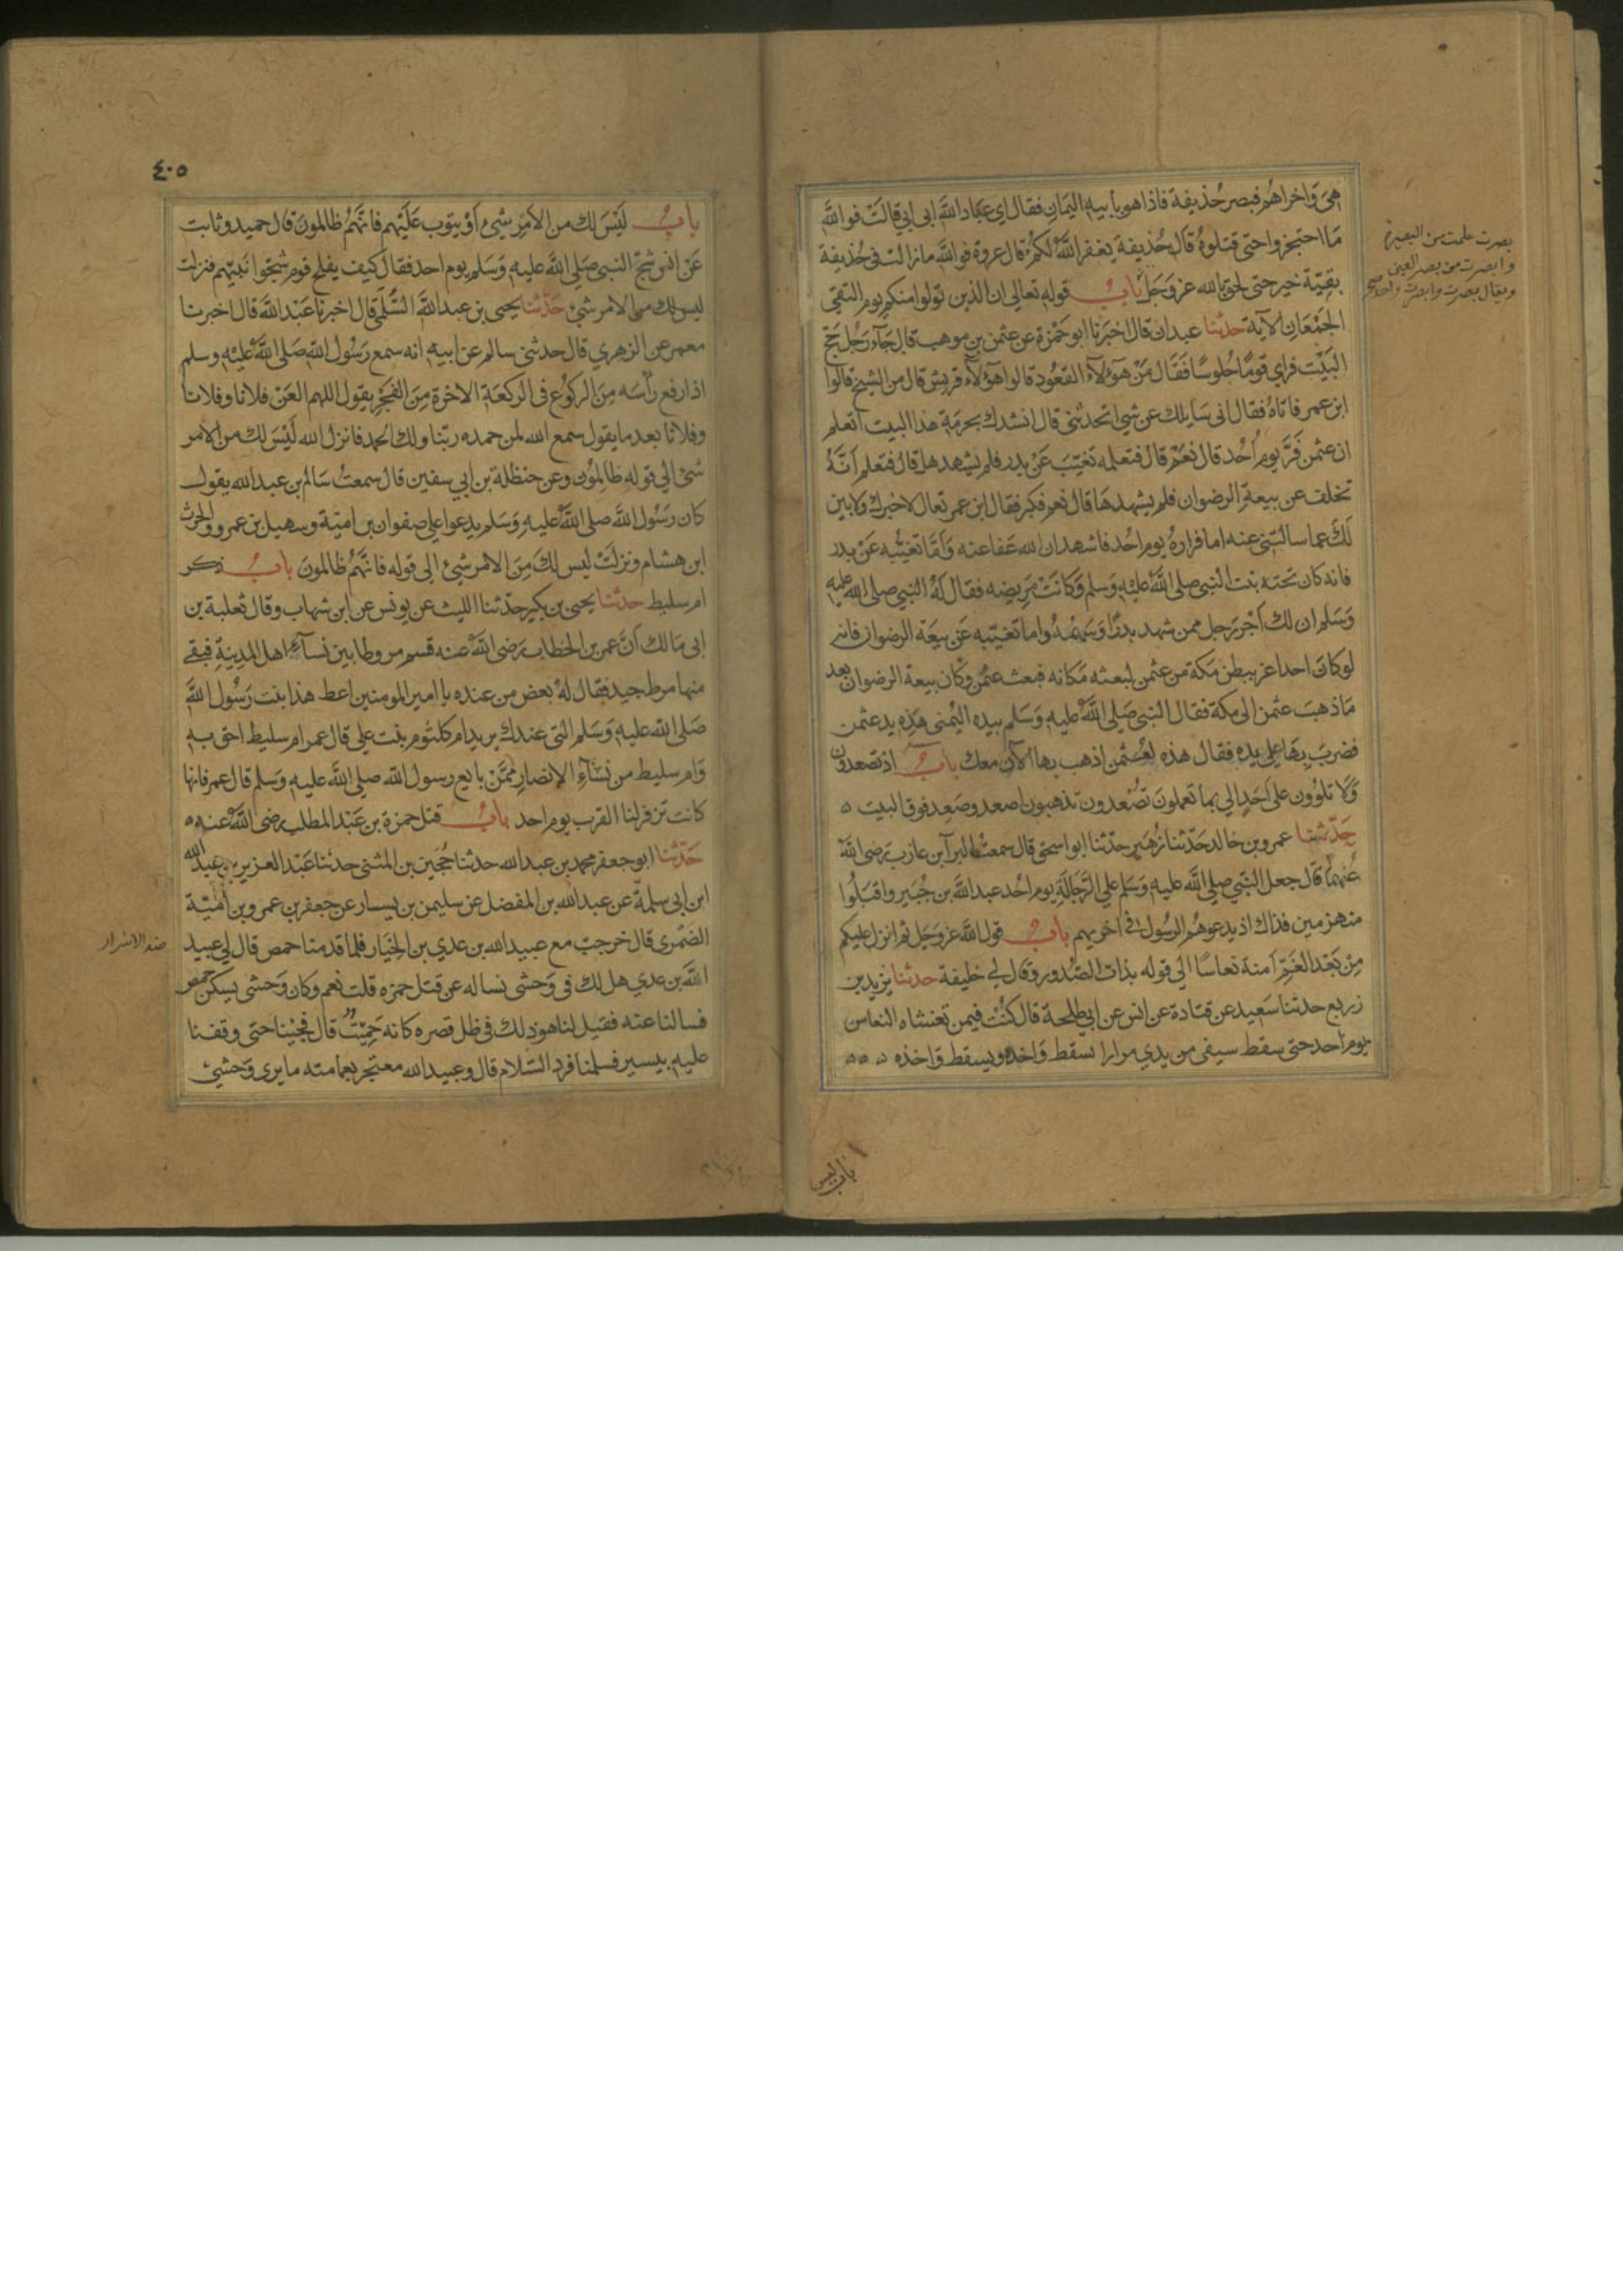 هي واخراهم فبصر حذيفة فاذا هو بابيه اليمان فقال اي عباد الله ابي ابي قالت فوالله
ما احتجزوا حتى قتلوه قال حذيفة يغفر الله لكم قال عروة فوالله ما زالت في حذيفة
بقية خير حتى لحق بالله عز وجل باب قوله تعالى ان الذين تولوا منكم يوم التقى
الجمعان الآية حدثنا عبدان قال اخبرنا ابو حمزة عن عثمن بن موهب قال جآء رجل حج
البيت فراى قوما جلوسا فقال من هؤلآء القعود قالوا هؤلآء قريش قال من الشيخ قالوا
ابن عمر فاتاه فقال اني سايلك عن شي اتحدثني قال انشدك بحرمة هذا البيت اتعلم
ان عثمن فر يوم احد قال نعم قال فتعلمه تغيب عن بدر فلم يشهدها قال فتعلم انه
تخلف عن بيعة الرضوان فلم يشهدها قال نعم فكبر فقال ابن عمر تعال لاخبرك ولابين
لك عما سالتني عنه اما فراره يوم احد فاشهد ان الله عفا عنه واما تغيبه عن بدر
فانه كان تحته بنت النبي صلى الله عليه وسلم وكانت مريضه فقال له النبي صلى الله عليه
وسلم ان لك اجر رجل ممن شهد بدرا وسهمه واما تغيبه عن بيعة الرضوان فانه
لو كان احد اعز ببطن مكة من عثمن لبعثه مكانه فبعث عثمن وكان بيعة الرضوان بعد
ما ذهب عثمن الى مكة فقال النبي صلى الله عليه وسلم بيده اليمنى هذه يد عثمن
فضرب بها على يده فقال هذه لعثمن اذهب بها الآن معك باب اذ تصعدون
ولا تلوون على احد الى بما تعملون تصعدون تذهبون اصعد وصعد فوق البيت ٥
حدثنا عمرو بن خالد حدثنا زهير حدثنا ابو اسحق قال سمعت البرآ بن عازب رضي الله
عنهما قال جعل النبي صلى الله عليه وسلم على الرجالة يوم احد عبد الله بن جبير واقبلوا
منهزمين فذاك اذ يدعوهم الرسول في اخريهم باب قول الله عز وجل ثم انزل عليكم
من بعد الغم امنة نعاسا الى قوله بذات الصدور وقال لي خليفة حدثنا يزيد بن
زريع حدثنا سعيد عن قتادة عن انس عن ابي طلحة قال كنت فيمن تغشاه النعاس
يوم احد حتى سقط سيفي من يدي مرارا يسقط واخذه ويسقط واخذه ٥ ٥ ٥
بصرت علمت من البصيرة
وابصرت من بصر العين
ويقال بصرت وابصرت واحد صح
باب ليس
٤٠٥
باب ليس لك من الامر شيئ او يتوب عليهم فانهم ظالمون قال حميد وثابت
عن انس شج النبي صلى الله عليه وسلم يوم احد فقال كيف يفلح قوم شجوا نبيهم فنزلت
ليس لك من الامر شيئ حدثنا يحيى بن عبد الله السلمي قال اخبرنا عبد الله قال اخبرنا
معمر عن الزهري قال حدثني سالم عن ابيه انه سمع رسول الله صلى الله عليه وسلم
اذا رفع رأسه من الركوع في الركعة الاخرة من الفجر يقول اللهم العن فلانا وفلانا
وفلانا بعد ما يقول سمع الله لمن حمده ربنا ولك الحمد فانزل الله ليس لك من الامر
شئ الى قوله ظالمون وعن حنظلة بن ابي سفين قال سمعت سالم بن عبد الله يقول
كان رسول الله صلى الله عليه وسلم يدعوا على صفوان بن امية وسهيل بن عمرو والحرث
ابن هشام ونزلت ليس لك من الامر شيئ الى قوله فانهم ظالمون باب ذكر
ام سليط حدثنا يحيى بن بكير حدثنا الليث عن يونس عن ابن شهاب وقال ثعلبة بن
ابي مالك ان عمر بن الخطاب رضي الله عنه قسم مروطا بين نسآء اهل المدينة فبقي
منها مرط جيد فقال له بعض من عنده يا امير المومنين اعط هذا بنت رسول الله
صلى الله عليه وسلم التي عندك يريد ام كلثوم بنت علي قال عمر ام سليط احق به
وام سليط من نسآء الانصار ممن بايع رسول الله صلى الله عليه وسلم قال عمر فانها
كانت تزفر لنا القرب يوم احد باب قتل حمزة بن عبد المطلب رضي الله عنه ٥
حدثنا ابو جعفر محمد بن عبد الله حدثنا حجين بن المثنى حدثنا عبد العزيز بن عبد الله
ابن ابي سلمة عن عبد الله بن المفضل عن سليمن بن يسار عن جعفر بن عمرو بن امية
الضمري قال خرجت مع عبيد الله بن عدي بن الخيار فلما قدمنا حمص قال لي عبيد
الله بن عدي هل لك في وحشي نساله عن قتل حمزه قلت نعم وكان وحشي يسكن حمص
فسالنا عنه فقيل لنا هو ذلك في ظل قصره كانه حميت قال فجئنا حتى وقفنا
عليه بيسير فسلمنا فرد السلام قال وعبيد الله معتجر بعمامته ما يرى وحشي
ضد الاشرار